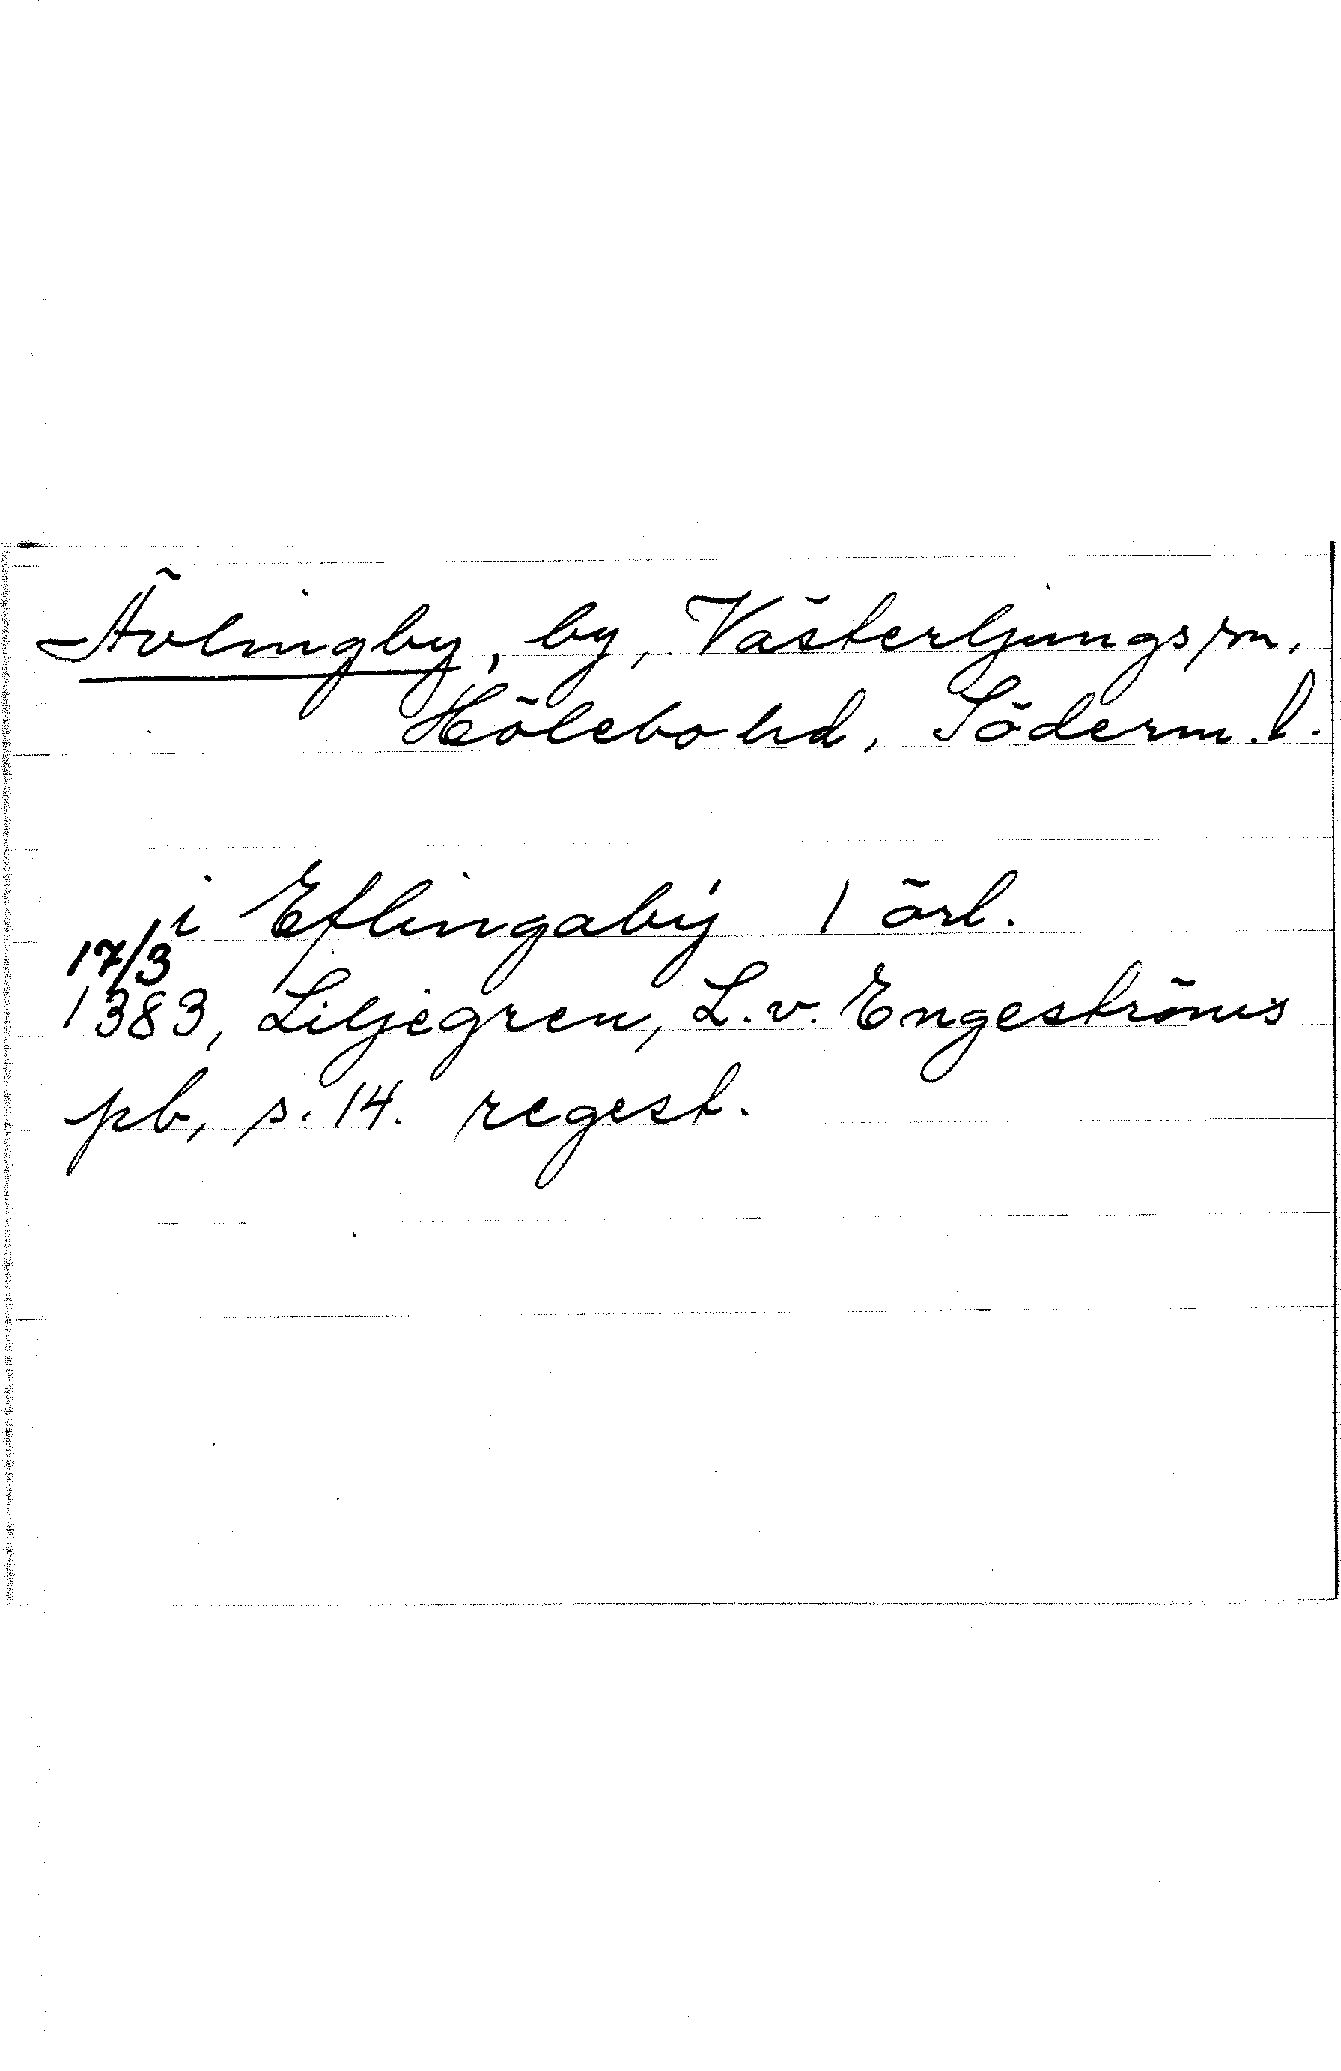 Ävlingby, by, Västerljungs sn.
Hölebo hd, Söderm. l.
i Eflingabÿ 1 örl.
17/3
1383, Liljegren, L. v. Engeströms
pb, s. 14. regest.